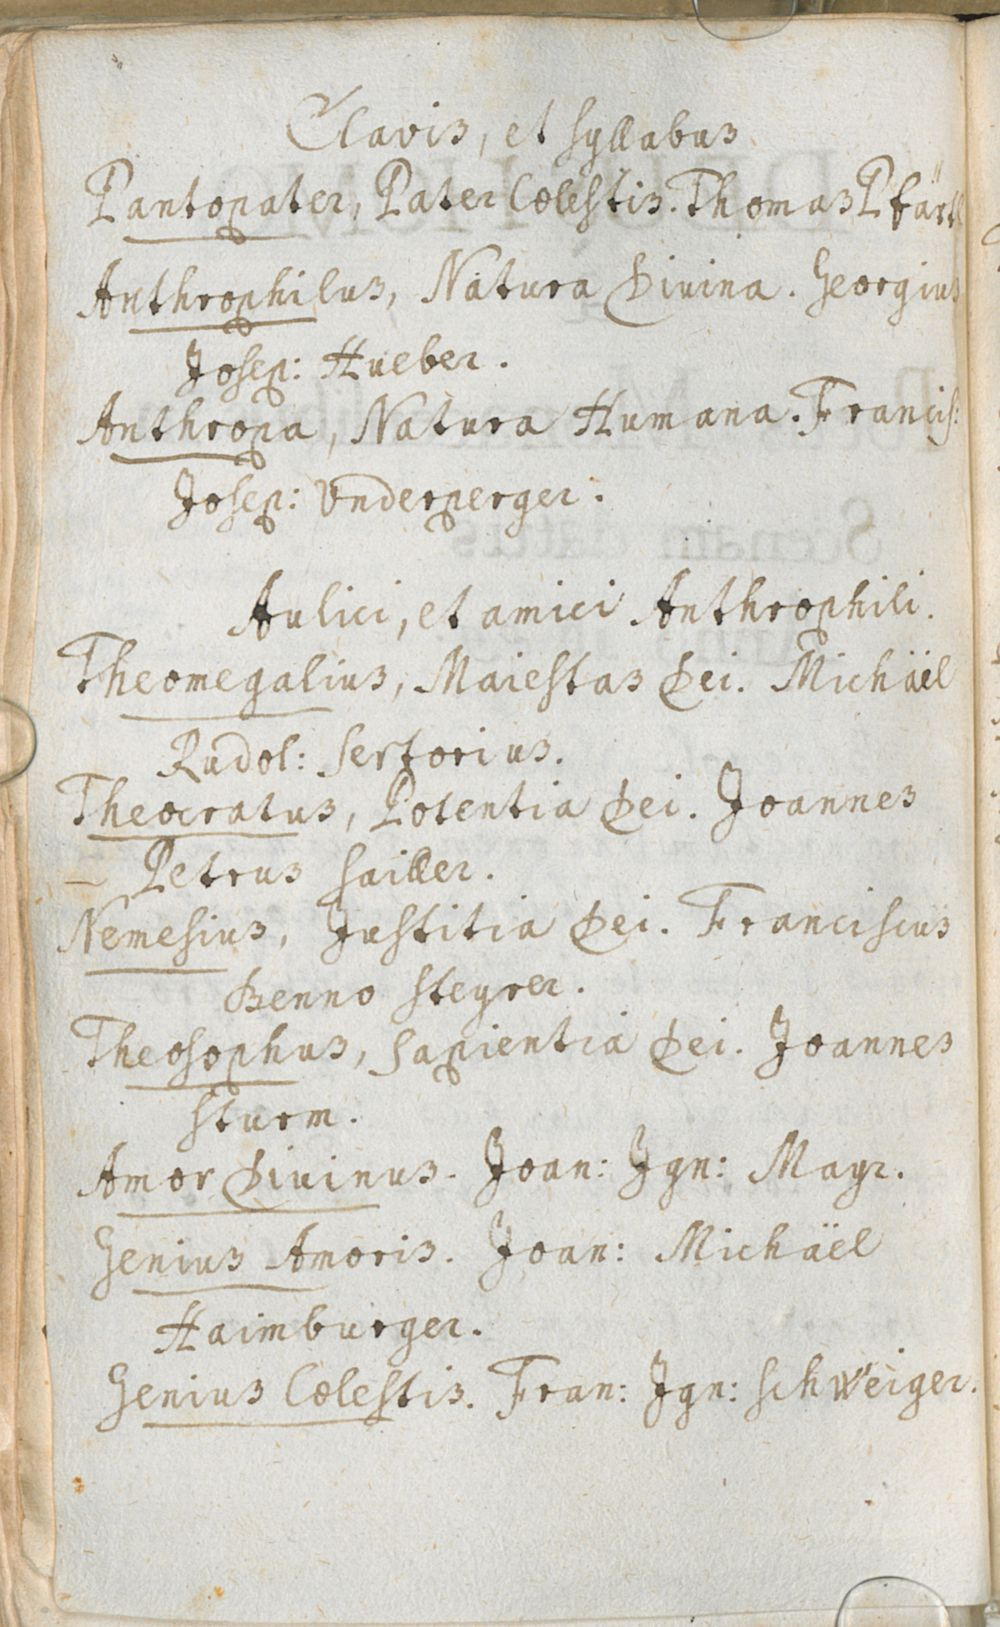 Clavis, et syllabus
Pantopater, Pater Cœlestis. Thomas
Anthrophilus, Natura Diuina. Georgius
Josep: Hueber.
Anthropa, Natura Humana. Francis:
Josep: Vnderperger.
Aulici, et amici Anthrophili.
Theomegalius, Maiestas Dei. Michäel
Rudol: Sertorius.
Theocratus, Potentia Dei. Joannes
Petrus Sailler.
Nemesius, Justitia Dei. Franciscus
Benno Steyrer.
Theosophus, Sapientia Dei. Joannes
Sturm.
Amor Diuinus. Joan: Ign: Mayr.
Genius Amoris. Joan: Michäel
Haimburger.
Genius Cœlestis. Fran: Ign: Schweiger.